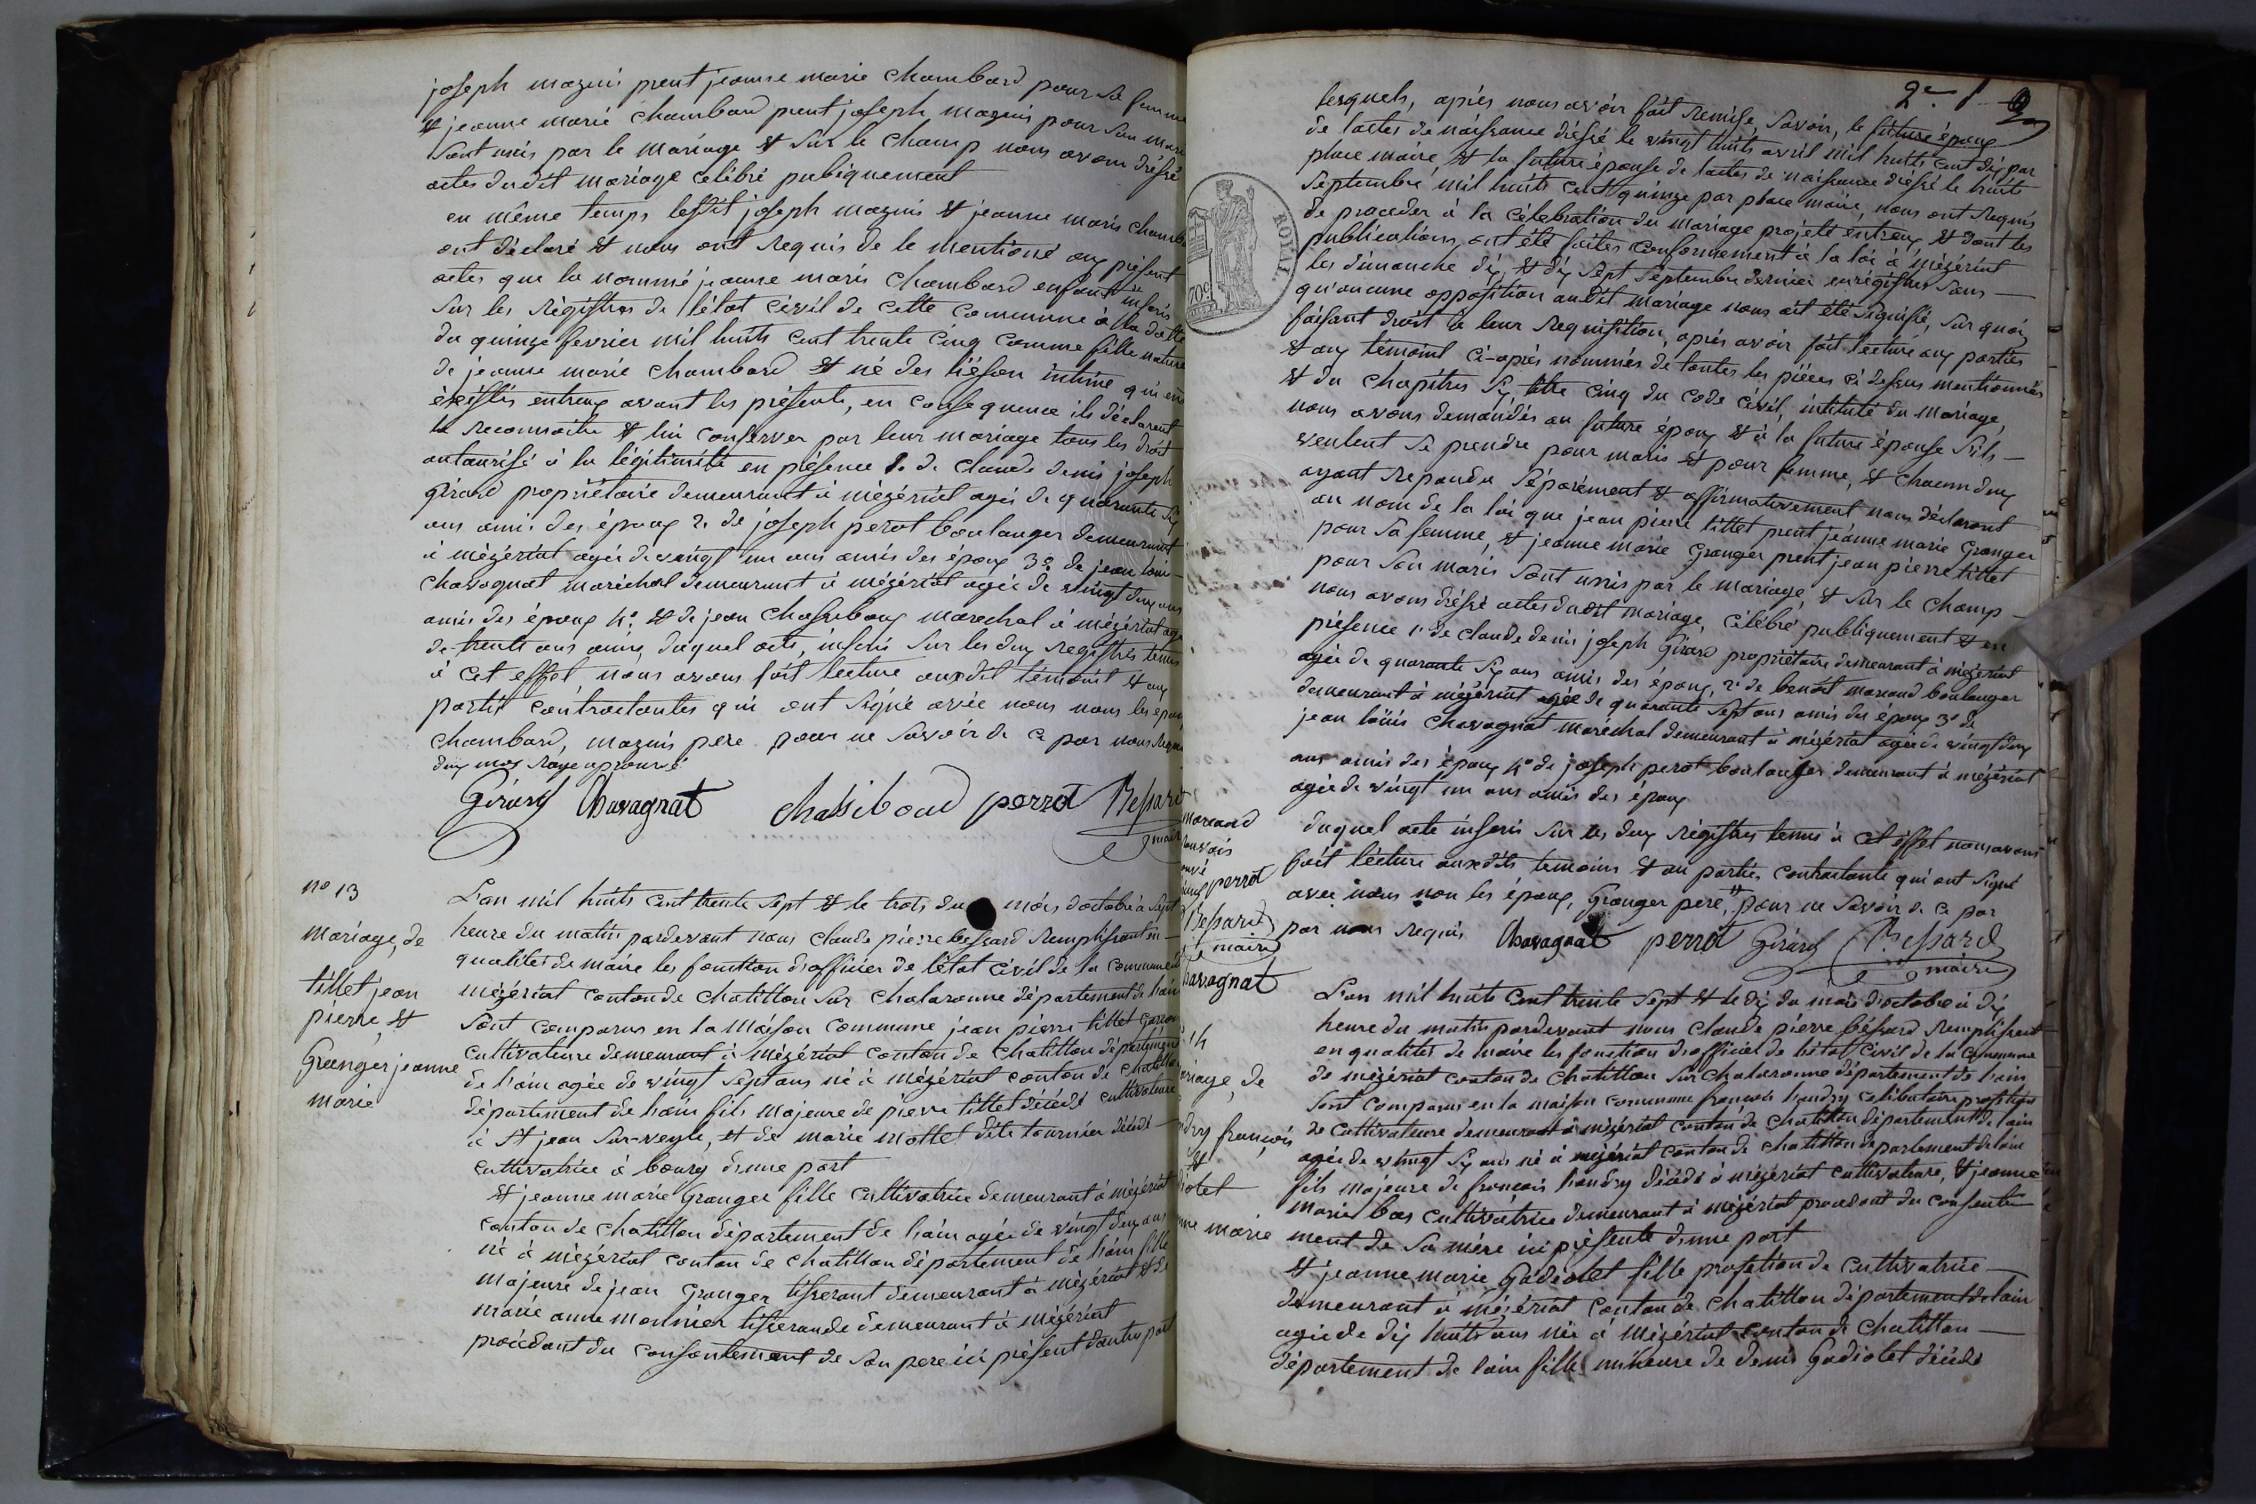 joseph mazuis prent jeanne marie Chambard pour sa femme
et jeanne marie Chambard prent joseph mazuis pour son mari
sont unis par le mariage et sur le champ nous avons dréssé
actes dudit mariage célébré publiquement
en même temps lesdit joseph mazuis et jeanne marie chamb
ont déclaré et nous ont requis de le mentioné aux présent
actes que la nommé jeanne marie Chambard enfant inscris
sur les régistres de l'état civil de cette commune à la datte
du quinze fevrier mil huits cent trente cinq comme fille nature
de jeanne marie Chambard et né des liéson intime qui
éxistés entreux avant les présente, en consequence ils déclarent
la reconnoitre et lui conserver par leur mariage tous les droit
autaurisé à la légitimité en présence 1o de claude denis joseph
Girard propriétaire demeurant à mézériat agés de quarante six
ans amis des époux 2o de joseph perot boulanger demeurant
à mézériat agée de vaingt un ans amis des époux 3o de jean louis
Chavagnat maréchal demeurant à mézériat agée de vaingt deux ans
amis des époux 4o et de jean Chassiboux marechal à mézériat agé
de trente ans amis, duquel acte, inscris sur les deux registres tenus
à cet effet nous avons fait lecture auxdit témoint et aux
partis contractantes qui ont signé avec nous nons les époux
Chambard, mazuis pere pour ne savoir de ce par nous requis
deux mos raye aprouvé
Girard Chavagnat Chassiboud perrot Bessard
maire
no 13
mariage, de
tillet jean
pierre, et
Granger jeanne
marie
L'an mil huits cent trente sept et le trois du mois d'octobre à sept
heure du matin pardevant nous claude pierre bessard remplissant en
qualités de maire les fonction d'officier de l'état civil de la commune
mézériat canton de Chatillon sur Chalaronne département de l'ain
sont comparus en la maison commune jean pierre tillet garcon
cultivateure demeurant à mézériat canton de Chatillon département
de l'ain agée de vaingt sept ans né à mézériat canton de Chatillon
département de l'ain fils majeure de pierre tillet décédé cultivateure
à St jean sur-veyle, et de marie mottet dite tournier décédé
cultivatrice à bourg d'une part
et jeanne marie Granger fille cultivatrice demeurant à mézériat
canton de Chatillon département de l'ain agée de vaingt deux ans
né à mézériat canton de Chatillon département de l'ain fille
majeure de jean Granger tisserant demeurant à mézériat et de
marie anne monnier tisserande demeurant à mézériat
procédant du consentement de son pere ici présent d'autre part
2e. f 9
lesquels, après nous avoir fait remise, savoir, le future époux
de lactes de naissance dréssé le vingt huits avril mil huits cent dix par
place maire et la future épouse de lactes de naissance dréssé le huits
septembre mil huits cent quinze par place maire, nous ont requis
de proceder à la célebration du mariage projeté entreux, et dont les
publications, ont été faites conformement à la loi à mézériat
les dimanche dix, et dix sept septembre dernier enrégistres sans
qu'aucune opposition audit mariage nous ait été signifié, sur quoi,
faisant droit à leur requisition, après avoir fait lecture aux parties
et aux témoint ci-après nommés de toutes les piéces ci dessus mentionnés
et du Chapitres six, titre cinq du code civil, intitulé du mariage,
nous avons demandés au future époux et à la future épouse s'ils
veulent se prendre pour maris et pour femme, et chacun deux
ayant repondu séparément et affirmativement nous déclaront
au nom de la loi que jean pierre tillet prent jeanne marie Granger
pour sa femme, et jeanne marie Granger prent jean pierre tillet
pour son maris sont unis par le mariage, et sur le champ
nous avons dréssé actes dudit mariage, célébré publiquement et en
présence 1o de claude denis joseph Girard propriétaire demeurant à mézériat
agée de quarante six ans amis des époux, 2o de benoit marand boulanger
demeurant à mézériat agée de quarante sept ans amis des époux 3o de
jean louis Chavagnat maréchal demeurant à mézériat agée de vingt deux
ans amis des époux 4o de joseph perot boulanger demeurant à mézériat
agée de vingt un ans amis des époux
duquel acte inscris sur les deux régistres tenus à cet effet nous avons
fait lécture auxdits temoins et au parties contractante qui ont signé
avec nous non les époux, Granger pere, pour ne savoir de ce par
par nous requis Chavagnat perrot Girard Bessard
maire
marand
perrot
Bessard
maire
havagnat
14
ariage, de
ndry françois
et
diotet
nne marie
L'an mil huits cent trente sept et le dix du mois d'octobre à dix
heure du matin pardevant nous claude pierre bessard remplissent
en qualités de maire les fonction d'officier de l'état civil de la commune
de mézériat canton de Chatillon sur Chalaronne département de l'ain
sont comparus en la maison commune francois handry célibataire profétion
de cultivateure demeurant à mézériat canton de Chatillon département de l'ain
agée de vingt six ans né à mézériat canton de Chatillon département de l'ain
fils majeure de francois handry décédé à mézériat cultivateure, et jeanne
marie bas cultivatrice demeurant à mézériat procédant du consente
ment de sa mére ici présente d'une part
et jeanne marie Gadiotet fille profétion de cultivatrice
demeurant à mézériat canton de Chatillon département de l'ain
agée de dix huits ans née à mézériat canton de Chatillon
département de l'ain fille mineure de denis Gadiotet décédé
ROYAL
70c